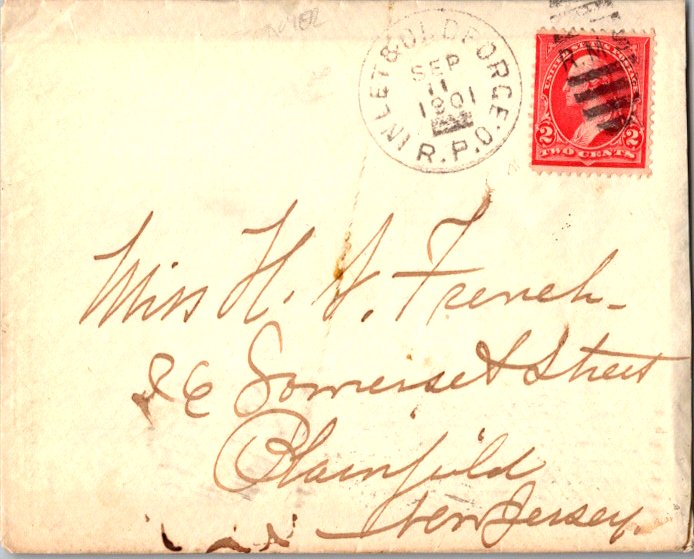 INLET & OLD FORGE. R.P.O.
SEP
11
1901
UNITED STATES POSTAGE
2 2
TWO CENTS
Miss H. W. French
26 Somerset Street
Plainfield
New Jersey.